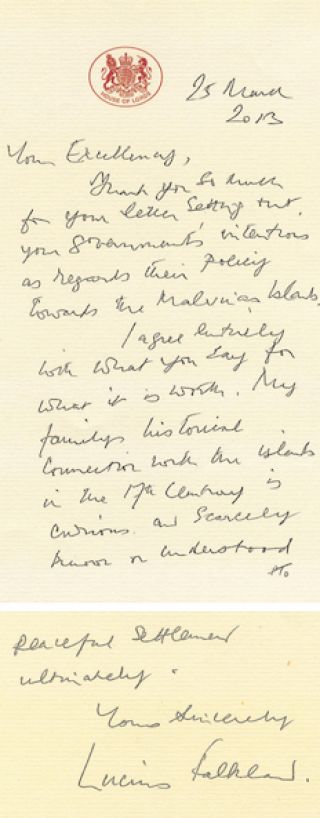 HOUSE OF LORDS
25 March
2013
Your Excellency,
Thank you so much
for your letter setting out
your government's intentions
as regards their policy
towards the Malvinas Islands.
I agree entirely
with what you say for
what it is worth. My
family's historical
connection with the islands
in the 17th Century is
curious and scarcely
known or understood
PTO
peaceful settlement
ultimately.
Yours sincerely
Lucius Falkland.